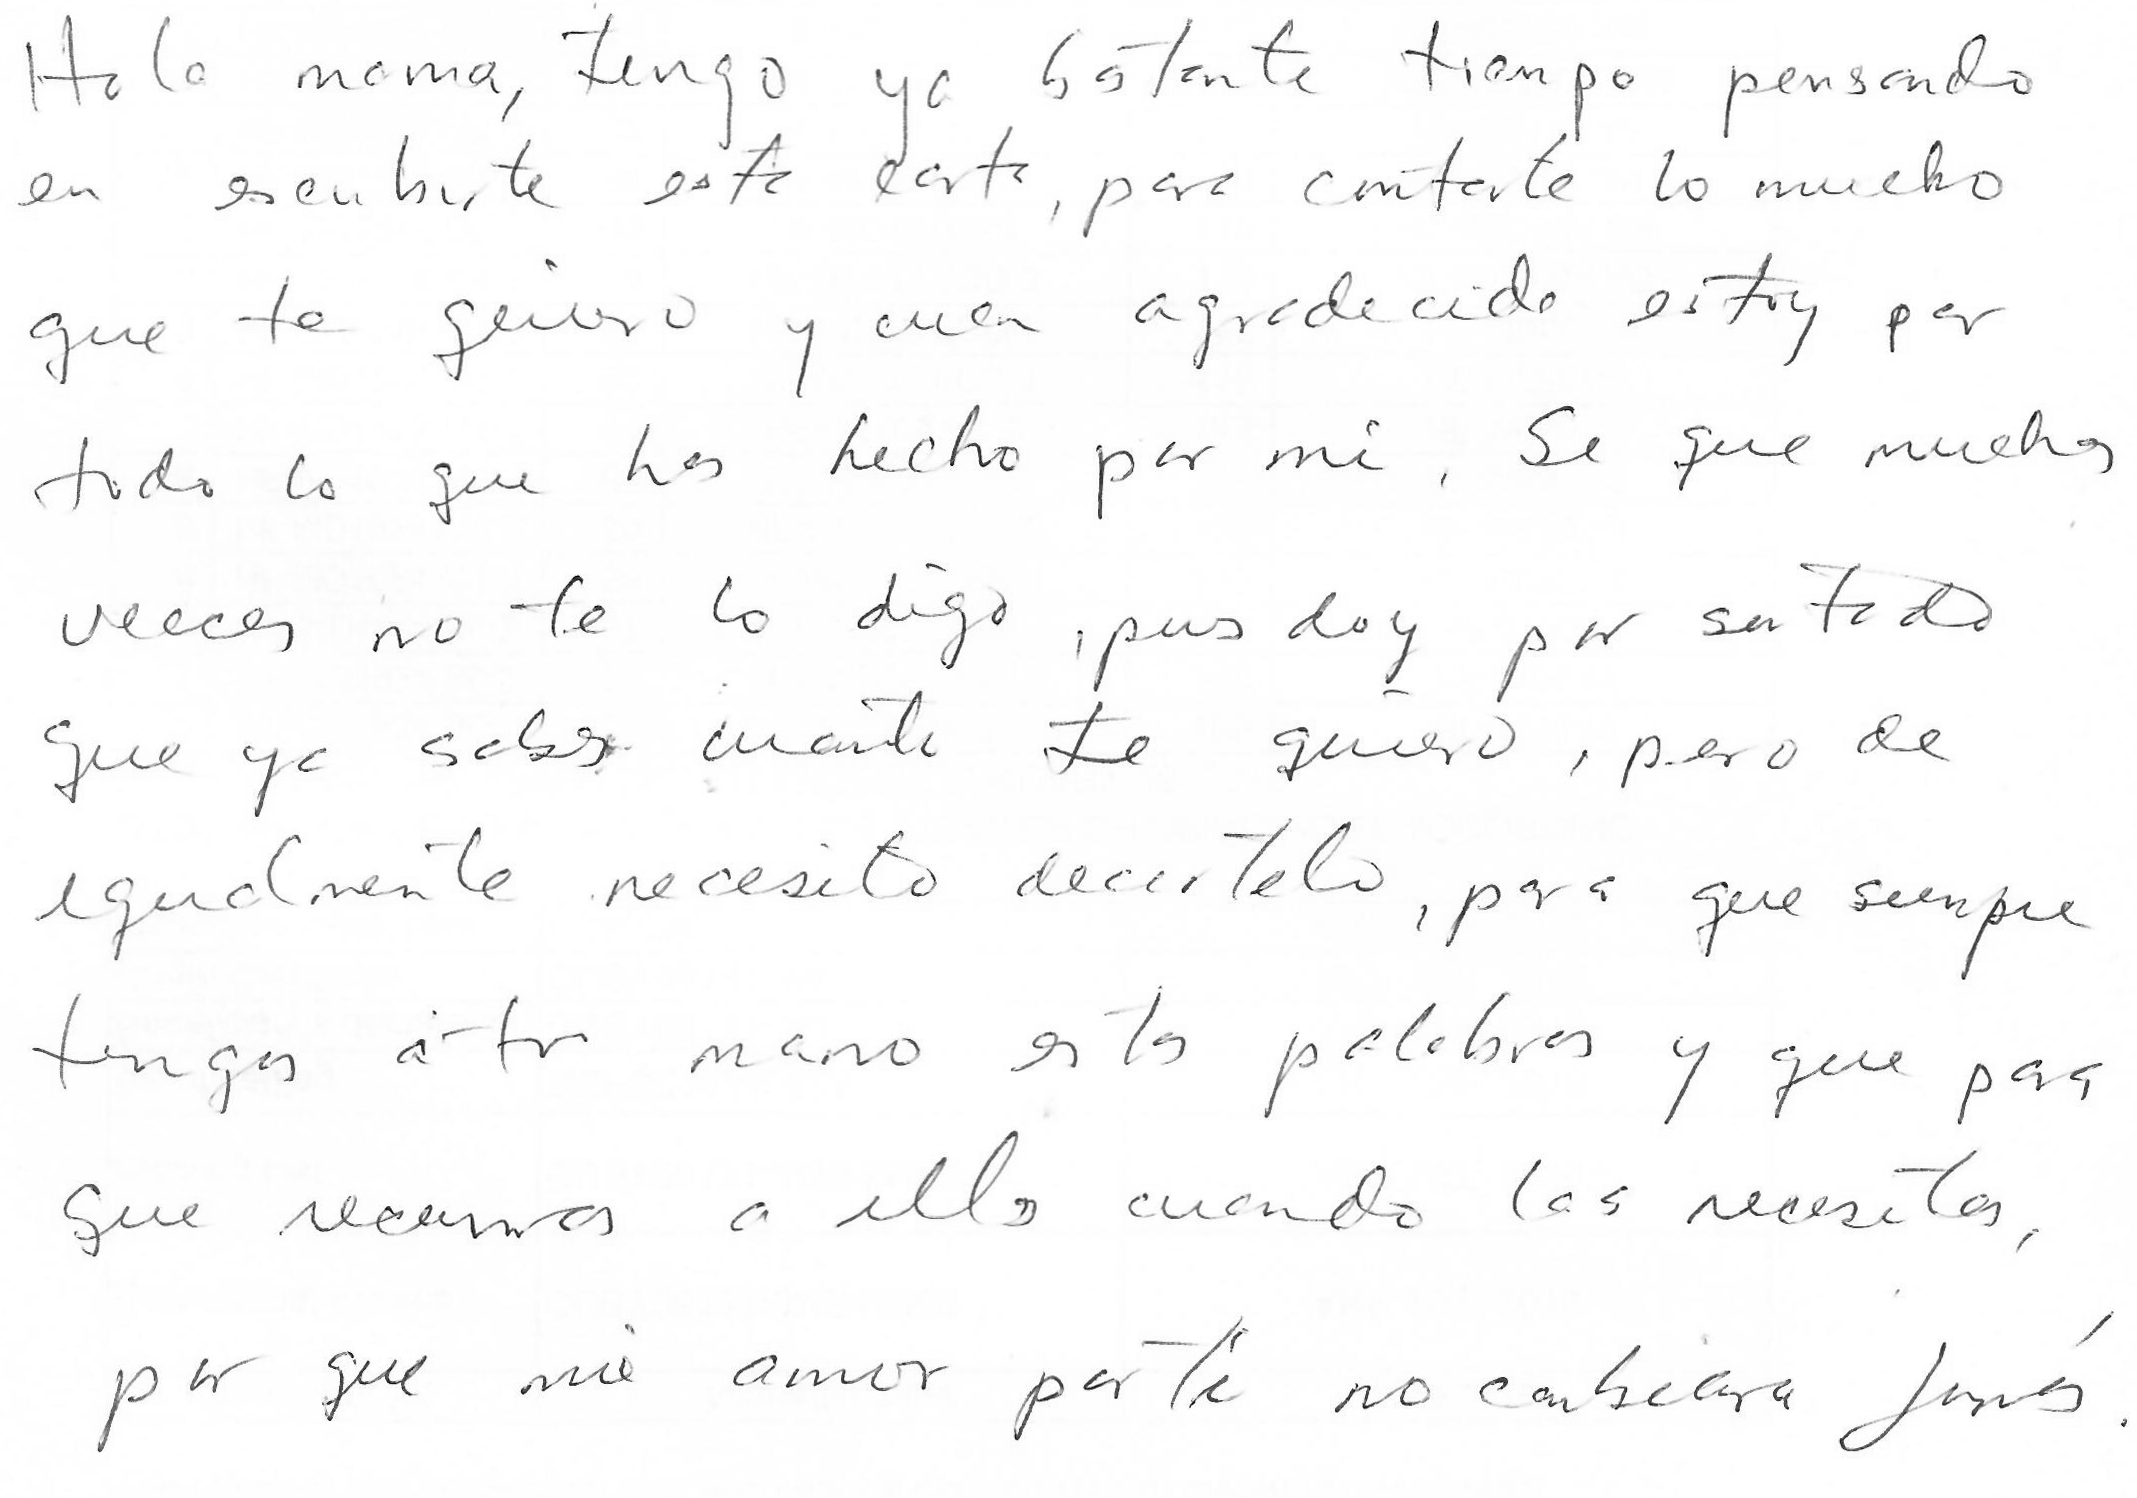 Hola mama, tengo ya bastante tiempo pensando
en escribirte esta carta, para contarte lo mucho
que te quiero y cuan agradecido estoy por
todo lo que has hecho por mi. Se que muchas
veces no te lo digo, pues doy por sentado
que ya sabes cuanto te quiero, pero de
igualmente necesito decirtelo, para que siempre
tengas a tu mano estas palabras y que para
que recurras a ellas cuando las necesitas,
por que mi amor por ti no cambiara jamás.